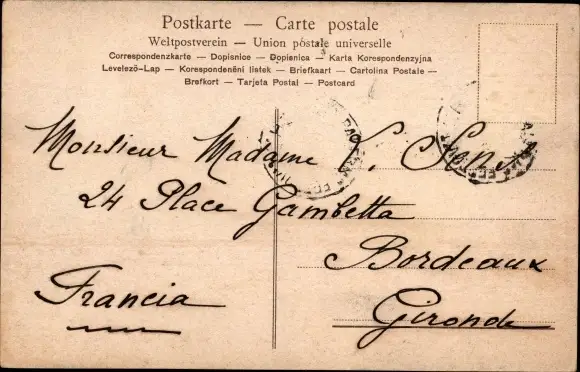 Postkarte — Carte postale
Weltpostverein — Union postale universelle
Correspondenzkarte — Dopisnice — Dopisnica — Karta Korespondenzyjna
Levelezö-Lap — Korespondenĕni listek — Briefkaart — Cartolina Postale —
Brefkort — Tarjeta Postal — Postcard
Monsieur Madame
24 Place Gambetta
Bordeaux
Francia
Gironde